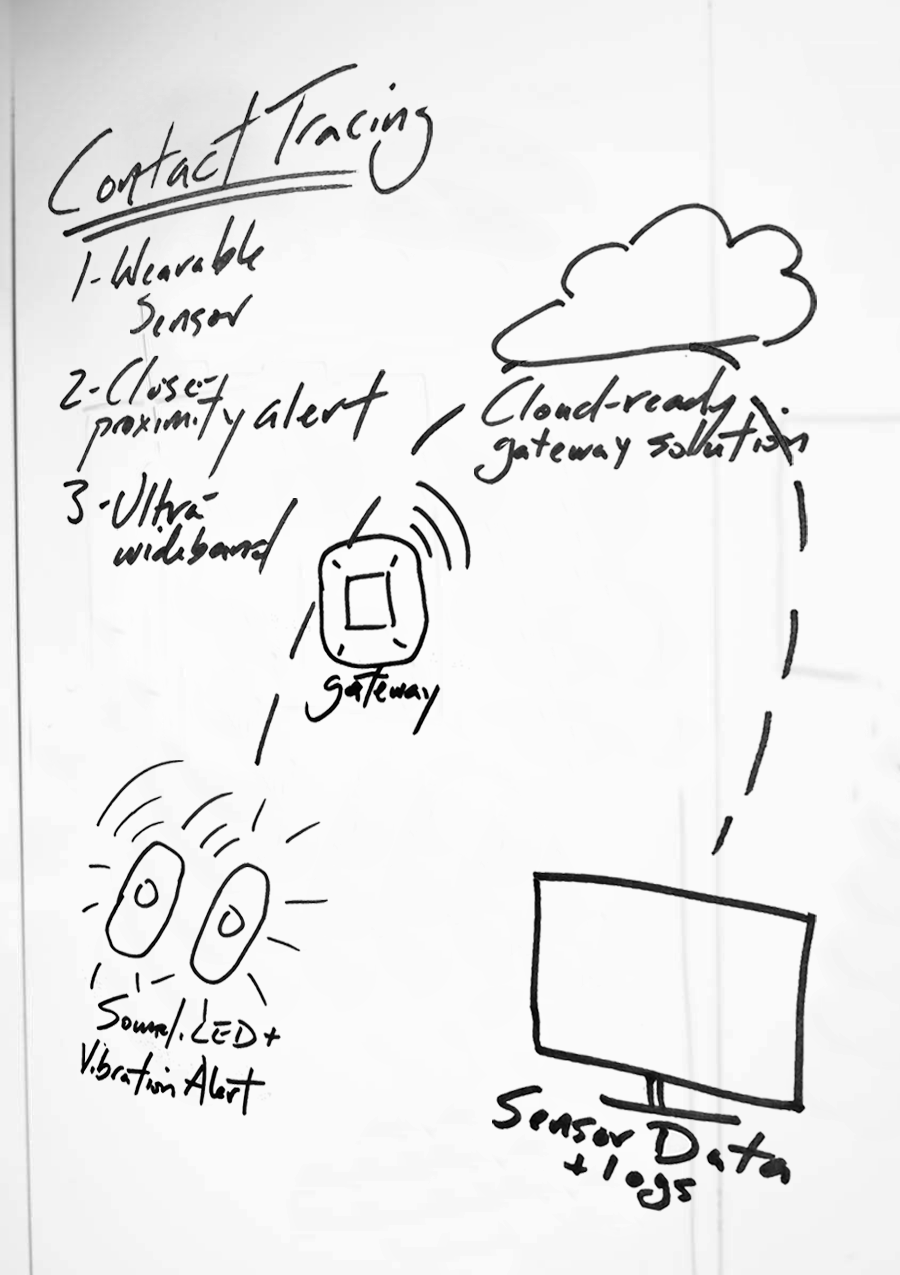 Contact Tracing
1-Wearable
Sensor
2-Close-
proximity alert
3-Ultra-
wideband
Cloud-ready
gateway solution
gateway
Sound, LED +
Vibration Alert
Sensor Data
+ logs